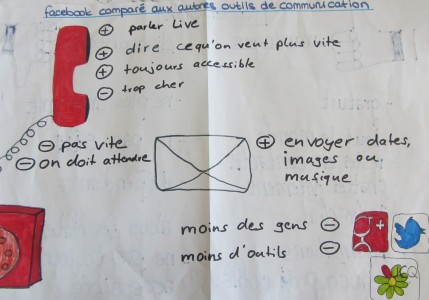 facebook comparé aux autres outils de communication
+ parler Live
+ dire cequ'on veut plus vite
+ toujours accessible
- trop cher
- pas vite
- on doit attendre
+ envoyer dates,
images ou
musique
moins des gens -
moins d'outils -
g+
ICQ